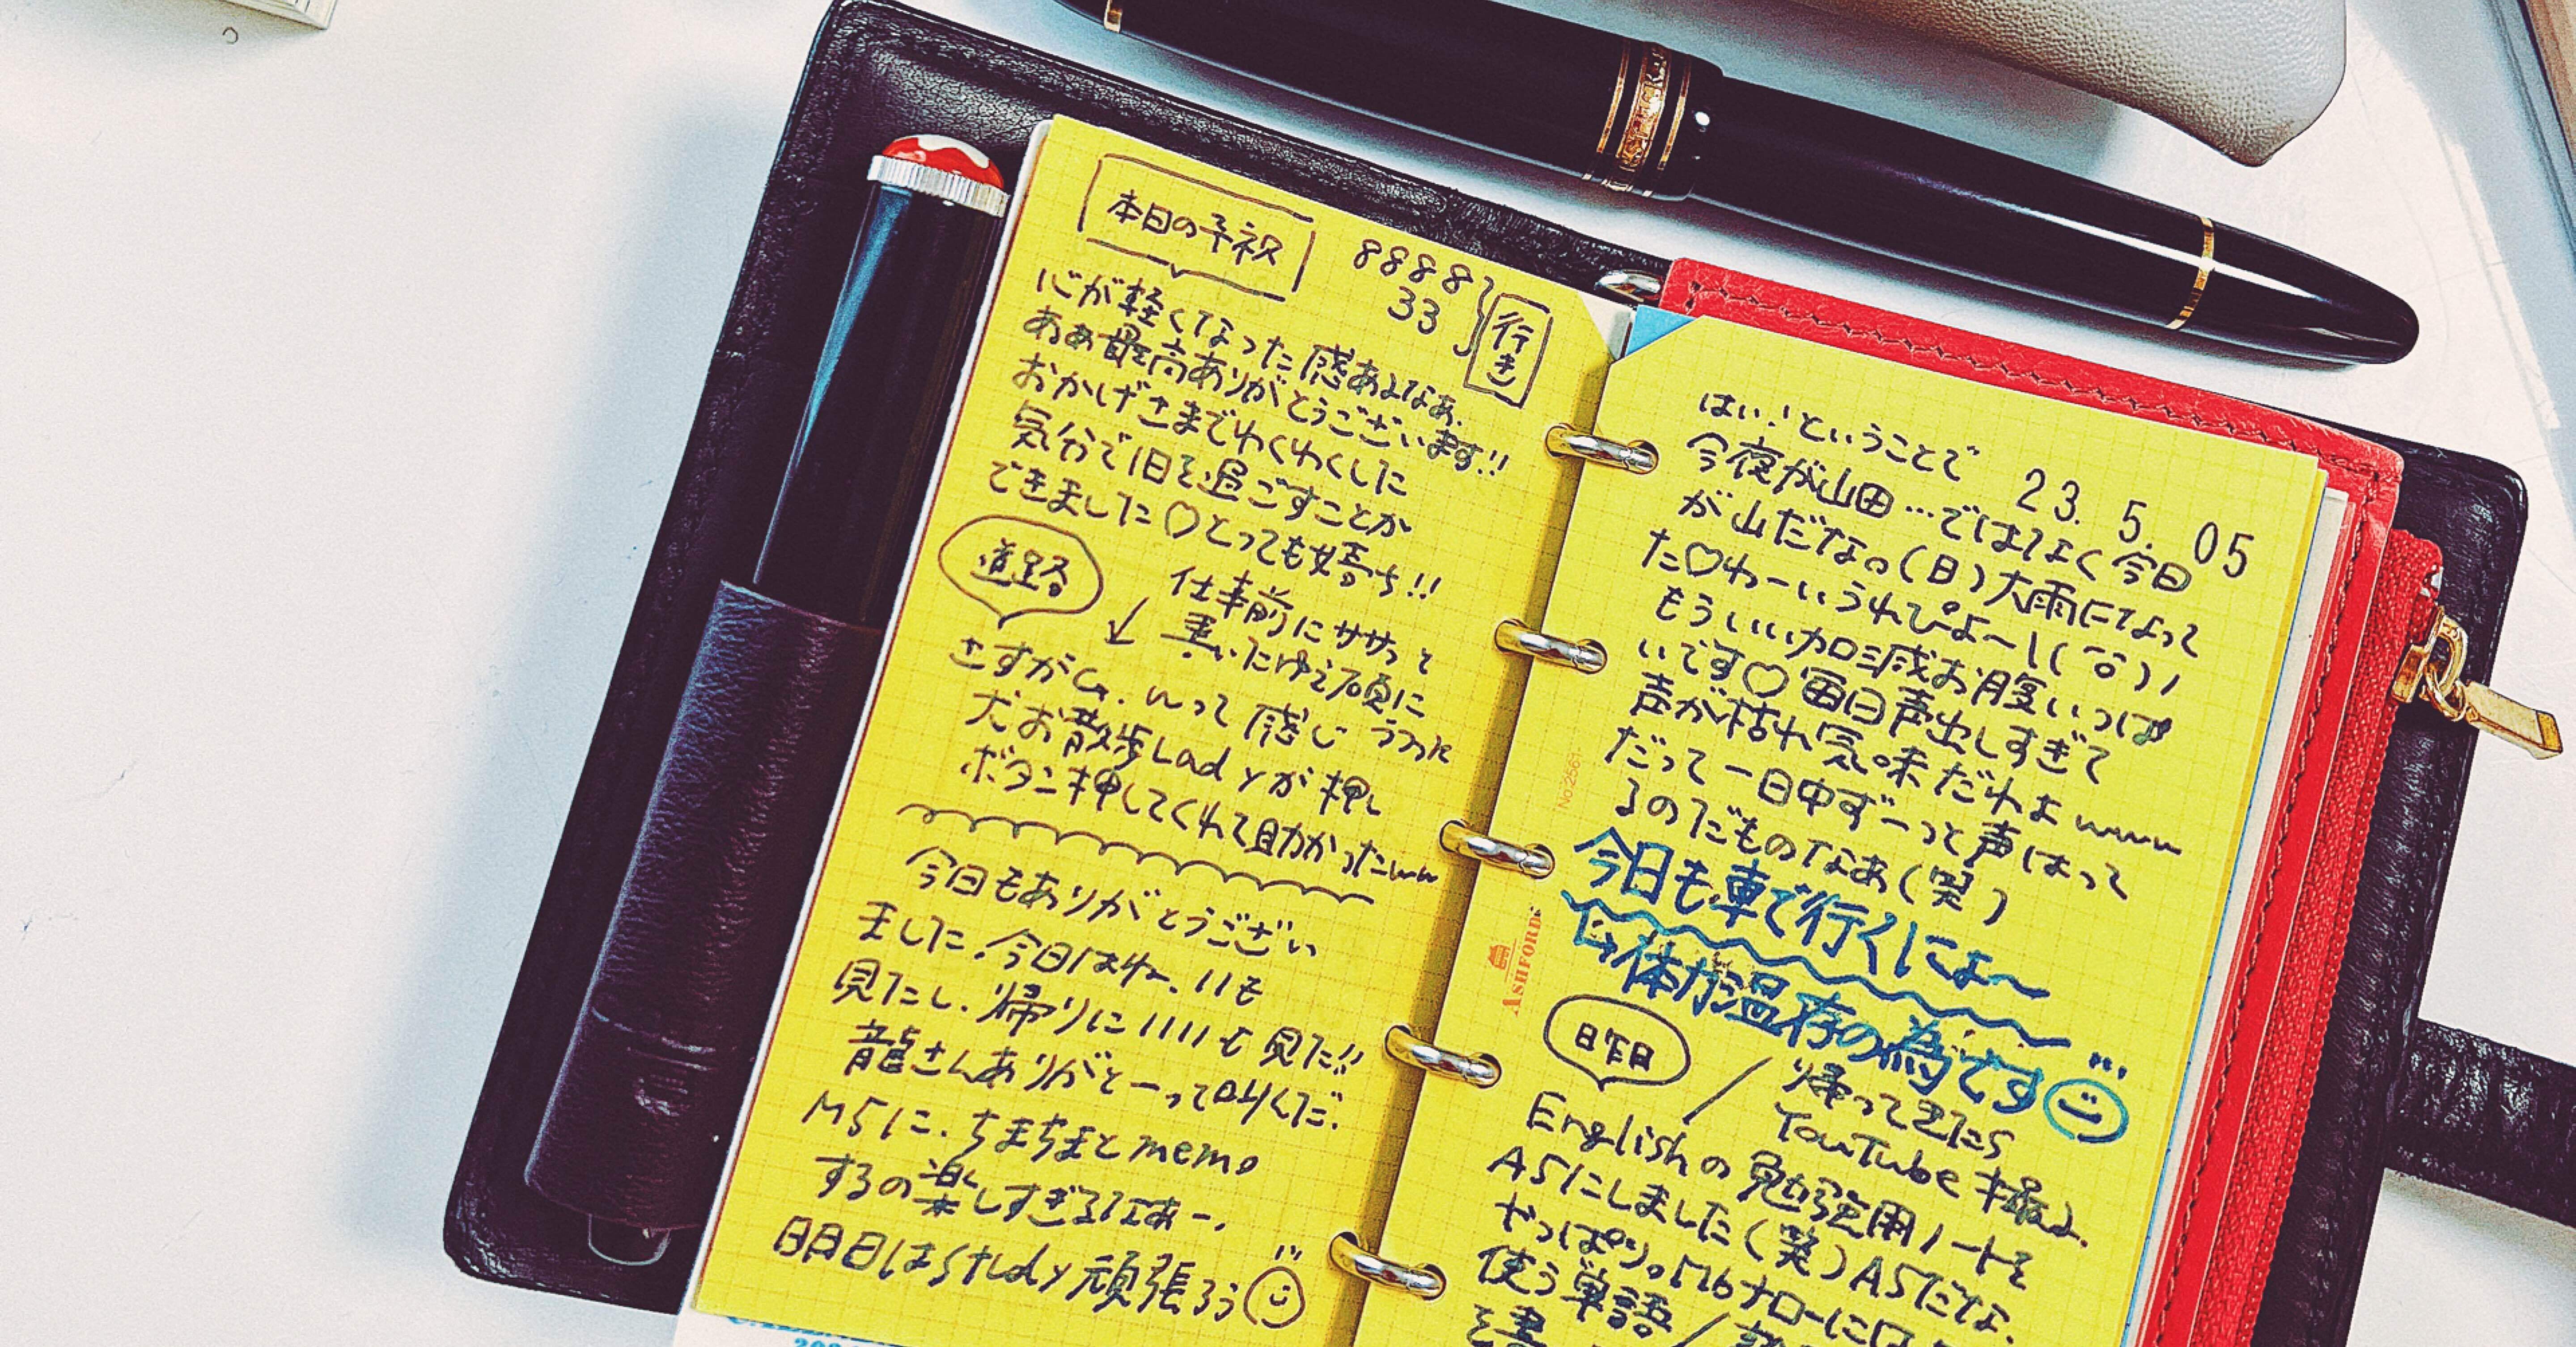 本日の予祝
8888
33
行き
心が軽くなった感あるなあ.
ああ最高ありがとうございます!!
おかげさまでわくわくした
気分で1日を過ごすことが
できました♡とっても嬉ち!!
道路
仕事前にササっと
書いたゆえ頭に
さすがG.wって感じ
犬お散歩Ladyが押し
ボタン押してくれて助かったww
今日もありがとうござい
ました.今日はね.11も
見たし.帰りに1111も見た!!
龍さんありがとーって叫んだ.
M5に.ちまちまとmemo
するの楽しすぎるなあー.
明日はstudy頑張ろう
はい!ということで
23. 5. 05
今夜が山田…ではなく今日
が山だな。(日)大雨になって
た♡わーいうれぴよ〜\(^o^)/
もういい加減お腹いっぱ
いです♡毎日声出しすぎて
声が枯れ気味だわよwww
だって一日中ずーっと声はって
るのだものなあ(笑)
今日も車で行くによ〜
↳体力温存の為です
No2561
ASHFORD
昨日
帰ってきたら
YouTube撮よ.
Englishの勉強用ノートを
A5にしました(笑)A5だな.
やっぱり。M6ナローには
使う単語
を書